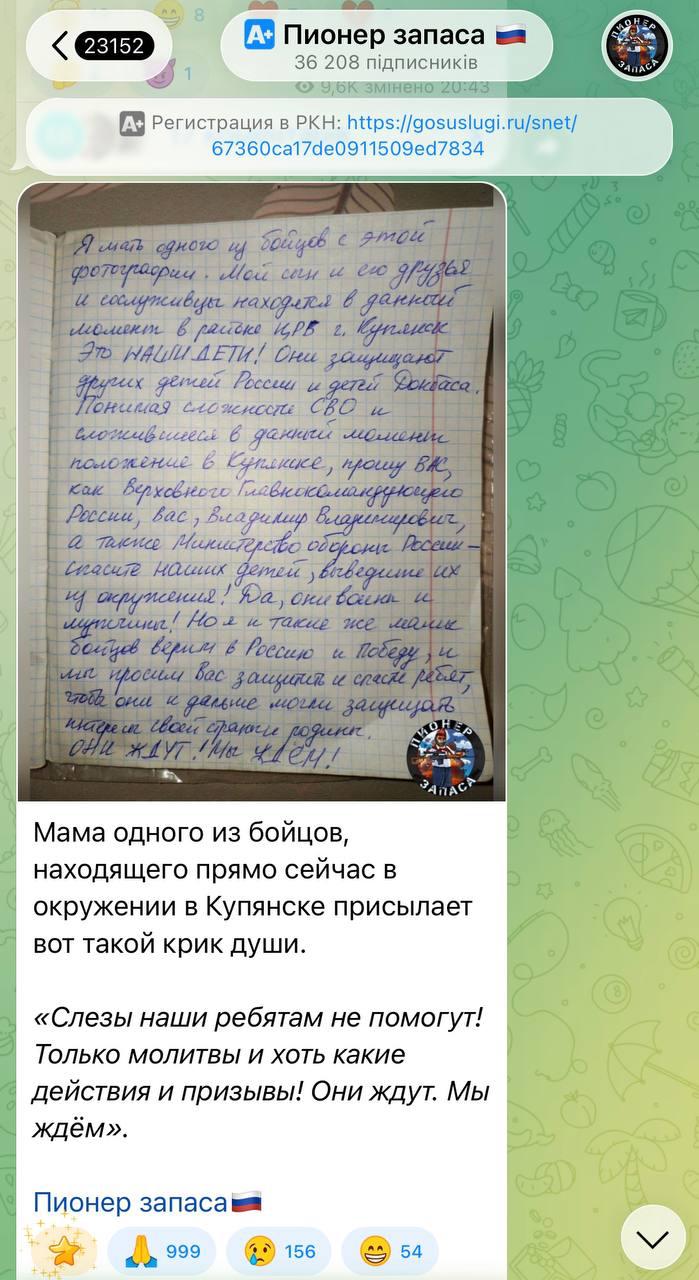 23152
A+ Пионер запаса
36 208 підписників
8
1
9,6K змінено 20:43
A+ Регистрация в РКН: https://gosuslugi.ru/snet/
67360ca17de0911509ed7834
ПИОНЕР
ЗАПАСА
Я мать одного из бойцов с этой
фотографии. Мой сын и его друзья
и сослуживцы находятся в данный
момент в районе ЦРБ г. Купянск
Это НАШИ ДЕТИ! Они защищают
других детей России и детей Донбаса.
Понимая сложности СВО и
сложившееся в данный момент
положение в Купянске, прошу ВАС,
как Верховного Главнокомандующего
России, Вас, Владимир Владимирович,
а также Министерство обороны России –
спасите наших детей, выведите их
из окружения! Да, они воины и
мужчины! Но я и такие же мамы
бойцов верим в Россию и Победу, и
мы просим Вас защитить и спасти ребят,
чтобы они и дальше могли защищать
интересы своей страны и родины.
ОНИ ЖДУТ! МЫ ЖДЁМ!
ПИОНЕР
ЗАПАСА
Мама одного из бойцов,
находящего прямо сейчас в
окружении в Купянске присылает
вот такой крик души.
«Слезы наши ребятам не помогут!
Только молитвы и хоть какие
действия и призывы! Они ждут. Мы
ждём».
Пионер запаса
999
156
54